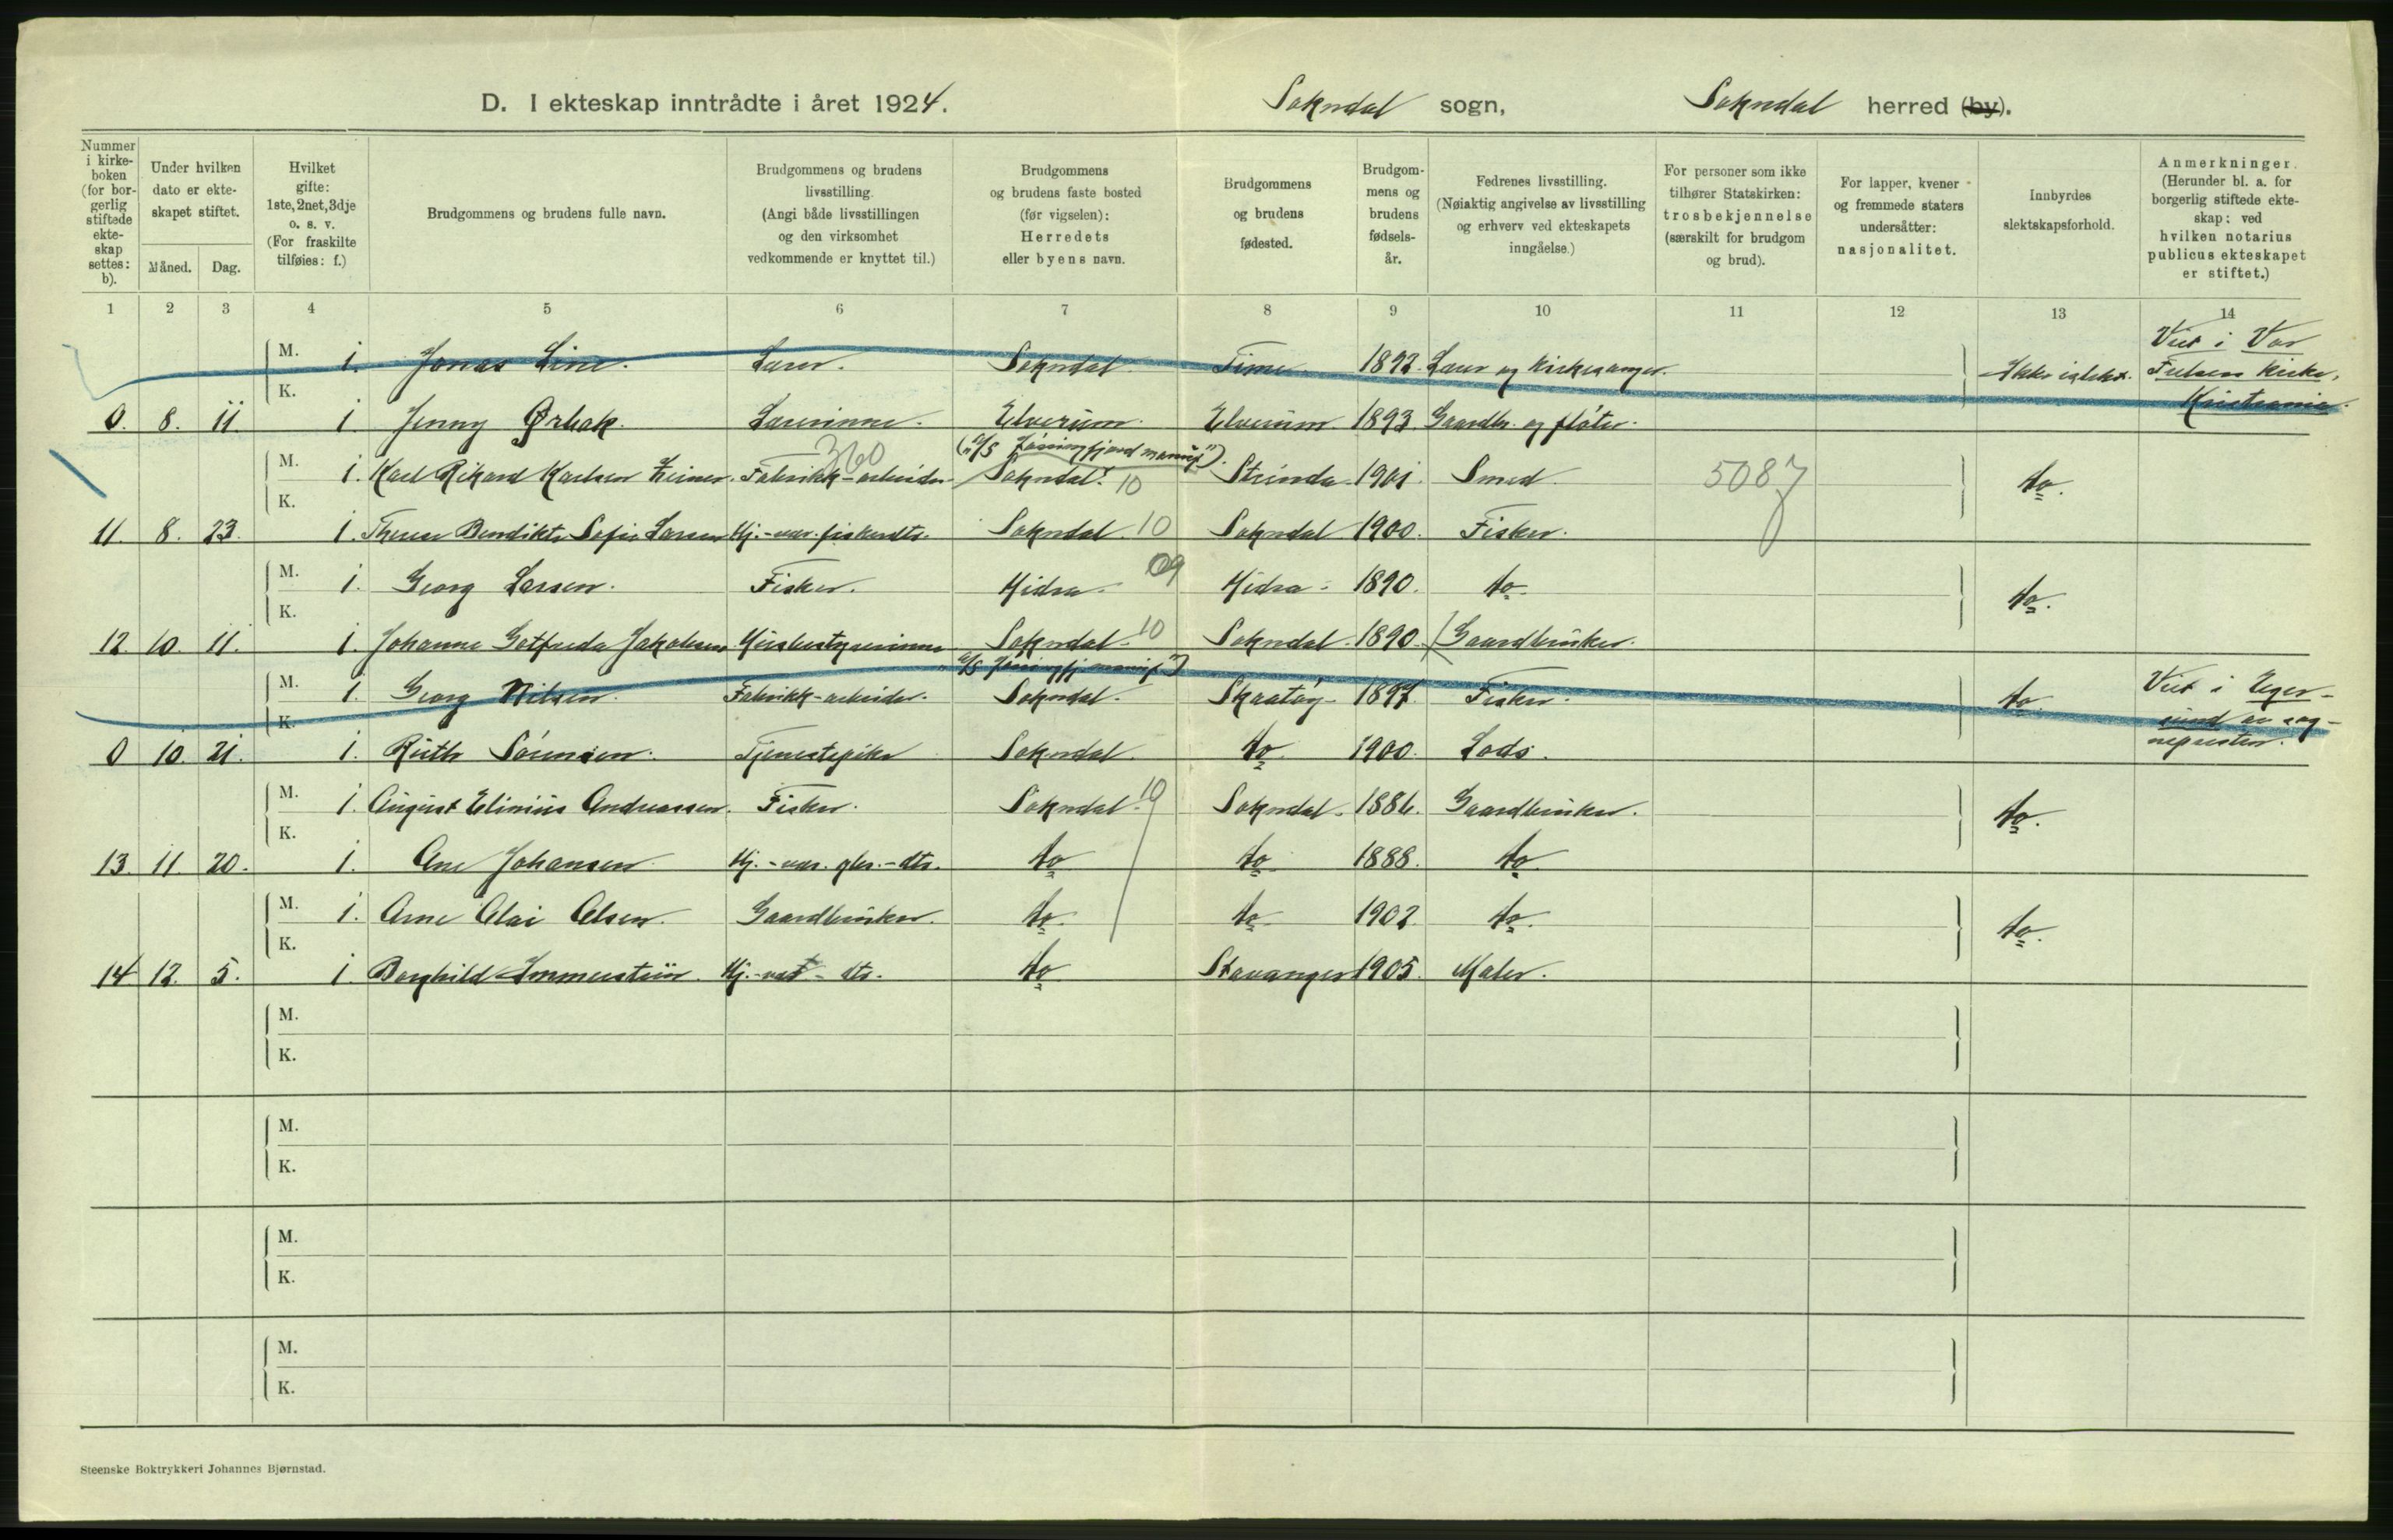 D. I ekteskap inntrådte i året 1924. Sokndal sogn, Sokndal herred (by).
Nummer i kirke-boken (for bor-gerlig stiftede ekte-skap settes: b).
Under hvilken dato er ekte-skapet stiftet.
Måned. Dag.
Hvilket gifte: 1ste, 2net, 3dje o. s. v. (For fraskilte tilføies: f.)
Brudgommens og brudens fulle navn.
Brudgommens og brudens livsstilling. (Angi både livsstillingen og den virksomhet vedkommende er knyttet til.)
Brudgommens og brudens faste bosted (før vigselen): Herredets eller byens navn.
Brudgommens og brudens fødested.
Brudgom-mens og brudens fødsels-år.
Fedrenes livsstilling. (Nøiaktig angivelse av livsstilling og erhverv ved ekteskapets inngåelse.)
For personer som ikke tilhører Statskirken: trosbekjennelse (særskilt for brudgom og brud).
For lapper, kvener og fremmede staters undersåtter: nasjonalitet.
Innbyrdes slektskapsforhold.
Anmerkninger. (Herunder bl. a. for borgerlig stiftede ekte-skap: ved hvilken notarius publicus ekteskapet er stiftet.)
1 2 3 4 5 6 7 8 9 10 11 12 13 14
M. 1. Jonas Line. Lærer. Sokndal. Time. 1892. Lærer og kirkesanger. Ikke i slekt. Viet i Vor Frelsers kirke, Kristiania.
K. 0. 8. 11. 1. Jenny Ørbak. Lærerinne. Elverum. Elverum 1893. Gaardbr. og fløter.
360 ("A/S Jøssingfjord manuf").
M. 1. Karl Rikard Karlsen Zeiner. Fabrikk-arbeider. Sokndal. 10 Strinda 1901. Smed. 5087 do.
K. 11. 8. 23. 1. Therese Bendikte Sofie Larsen Hj.-vær. fiskerdtr. Sokndal. 10 Sokndal 1900. Fisker.
M. 1. Georg Larsen. Fisker. Hidra. 09 Hidra. 1890. do. do.
K. 12. 10. 11. 1. Johanne Gotfreda Jakobsen Husbestyrerinne Sokndal. 10 Sokndal. 1890. Gaardbruker.
"A/S Jøssingfj. manuf")
M. 1. Georg Nilsen. Fabrikk-arbeider. Sokndal. Skaatøy 1897. Fisker. do. Viet i Eger-sund av sog-nepresten.
K. 0 10. 21. 1. Ruth Sørensen. Tjenestepike Sokndal. do. 1900. Lods.
M. 1. August Elinius Andreassen. Fisker. Sokndal. 10 Sokndal. 1886. Gaardbruker. do.
K. 13. 11. 20. 1. Ane Johansen Hj.-vær. gbr.-dtr. do do 1888. do
M. 1. Arne Olai Olsen. Gaardbruker. do. do. 1902. do. do.
K. 14 12. 5. 1. Borghild Immerstein. Hj.-vær. dtr. do Stavanger 1905. Maler.
M.
K.
M.
K.
M.
K.
M.
K.
Steenske Boktrykkeri Johannes Bjørnstad.